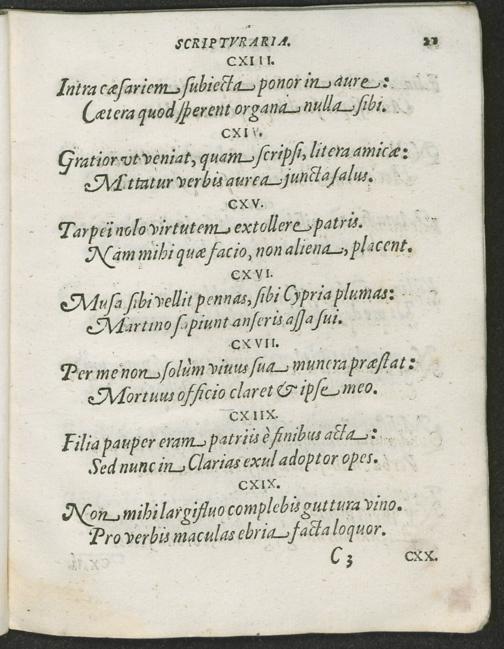 SCRIPTVRARIA.
CXIII.
Intra cæsariem subiecta ponor in aure:
Cætera quod sperent organa nulla sibi.
CXIV.
Gratior vt veniat, quam scripsi, litera amicæ:
Mittatur verbis aurea juncta salus.
CXV.
Tarpeï nolo virtutem extollere patris.
Nam mihi quæ facio, non aliena, placent.
CXVI.
Musa sibi vellit pennas, sibi Cypria plumas:
Martino sapiunt anseris assa sui.
CXVII.
Per me non solùm viuus sua munera præstat:
Mortuus officio claret & ipse meo.
CXIIX.
Filia pauper eram patriis è finibus acta:
Sed nunc in Clarias exul adoptor opes.
CXIX.
Non mihi largifluo complebis guttura vino.
Pro verbis maculas ebria facta loquor.
C 3 CXX.